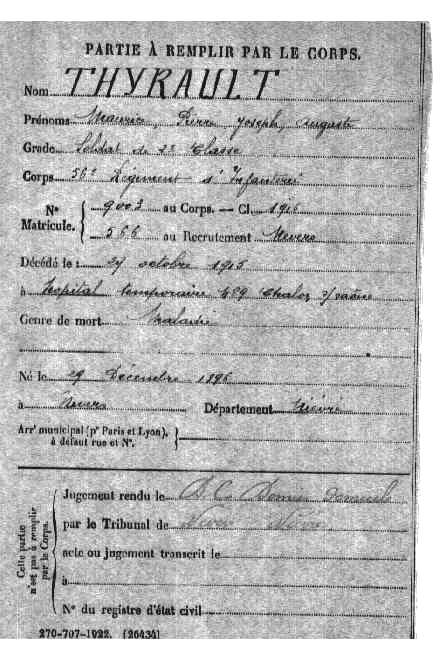 PARTIE À REMPLIR PAR LE CORPS.
Nom THYRAULT
Prénoms Maurice, Pierre Joseph, Auguste
Grade Soldat de 2e Classe
Corps 56e Régiment d'Infanterie
N° Matricule. 9003 au Corps. — Cl. 1916
566 au Recrutement Nevers
Décédé le 27 octobre 1915
à Hopital temporaire Chalon s/ saône
Genre de mort Maladie
Né le 29 Décembre 1896
à Nevers Département Nièvre
Arrt municipal (pr Paris et Lyon),
à défaut rue et N°.
Cette partie n'est pas à remplir par le Corps.
Jugement rendu le D. C. Dernier Domicile
par le Tribunal de Nevers
acte ou jugement transcrit le
à
N° du registre d'état civil
270-708-1922. [26434]